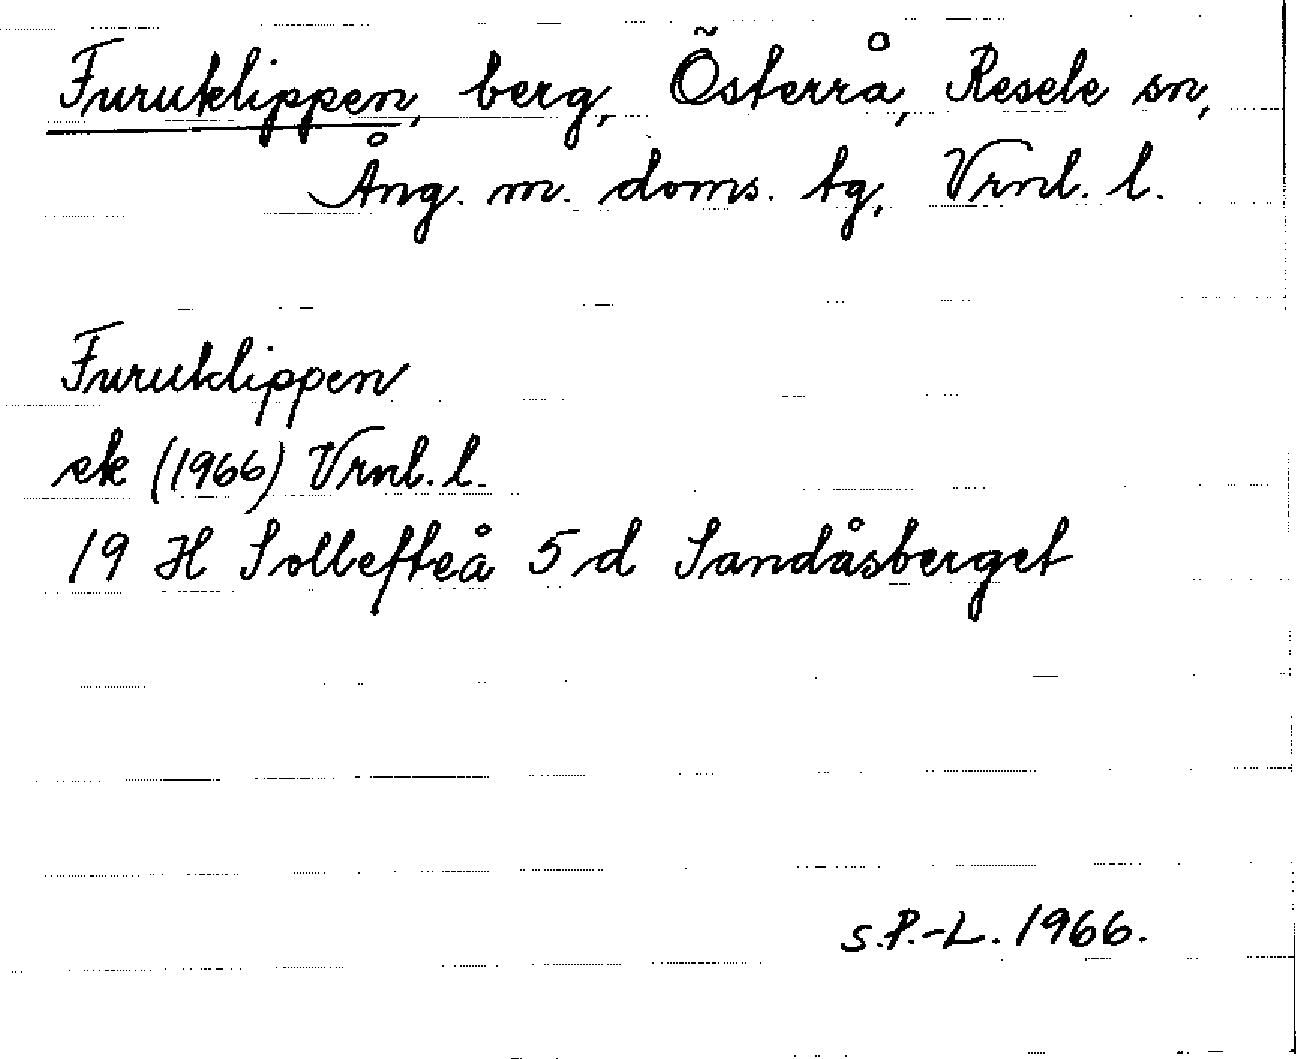 Furuklippen, berg, Österrå, Resele sn,
Ång. m. doms. tg, Vrnl. l.
Furuklippen
ek (1966) Vrnl. l.
19 H Sollefteå 5 d Sandåsberget
S.P.-L. 1966.